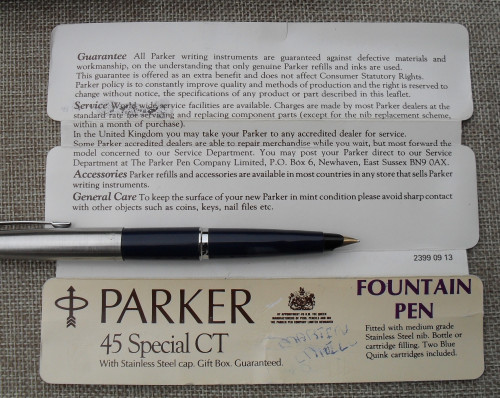 Guarantee All Parker writing instruments are guaranteed against defective materials and
workmanship, on the understanding that only genuine Parker refills and inks are used.
This guarantee is offered as an extra benefit and does not affect Consumer Statutory Rights.
Parker policy is to constantly improve quality and methods of production and the right is reserved to
change without notice, the specifications of any product or part described in this leaflet.
Service World wide service facilities are available. Charges are made by most Parker dealers at the
standard rate for servicing and replacing component parts (except for the nib replacement scheme,
within a month of purchase).
In the United Kingdom you may take your Parker to any accredited dealer for service.
Some Parker accredited dealers are able to repair merchandise while you wait, but most forward the
model concerned to our Service Department. You may post your Parker direct to our Service
Department at The Parker Pen Company Limited, P.O. Box 6, Newhaven, East Sussex BN9 0AX.
Accessories Parker refills and accessories are available in most countries in any store that sells Parker
writing instruments.
General Care To keep the surface of your new Parker in mint condition please avoid sharp contact
with other objects such as coins, keys, nail files etc.
2399 09 13
PARKER
45 Special CT
With Stainless Steel cap. Gift Box. Guaranteed.
BY APPOINTMENT TO H.M. THE QUEEN
MANUFACTURERS OF PENS, PENCILS AND INK
THE PARKER PEN COMPANY LIMITED NEWHAVEN
FOUNTAIN
PEN
Fitted with medium grade
Stainless Steel nib. Bottle or
cartridge filling. Two Blue
Quink cartridges included.